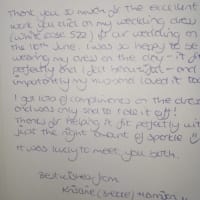 Thank you so much for the excellent
work you did on my wedding dress
(white rose 522) for our wedding on
the 10th June. I was so happy to be
wearing my dress on the day - it fit
perfectly and I felt beautiful - and
importantly my husband loved it too
I got lots of compliments on the dress
and was only sad to take it off!
Thanks for helping it fit perfectly with
just the right amount of sparkle
It was lucky to meet you both.
Best wishes from